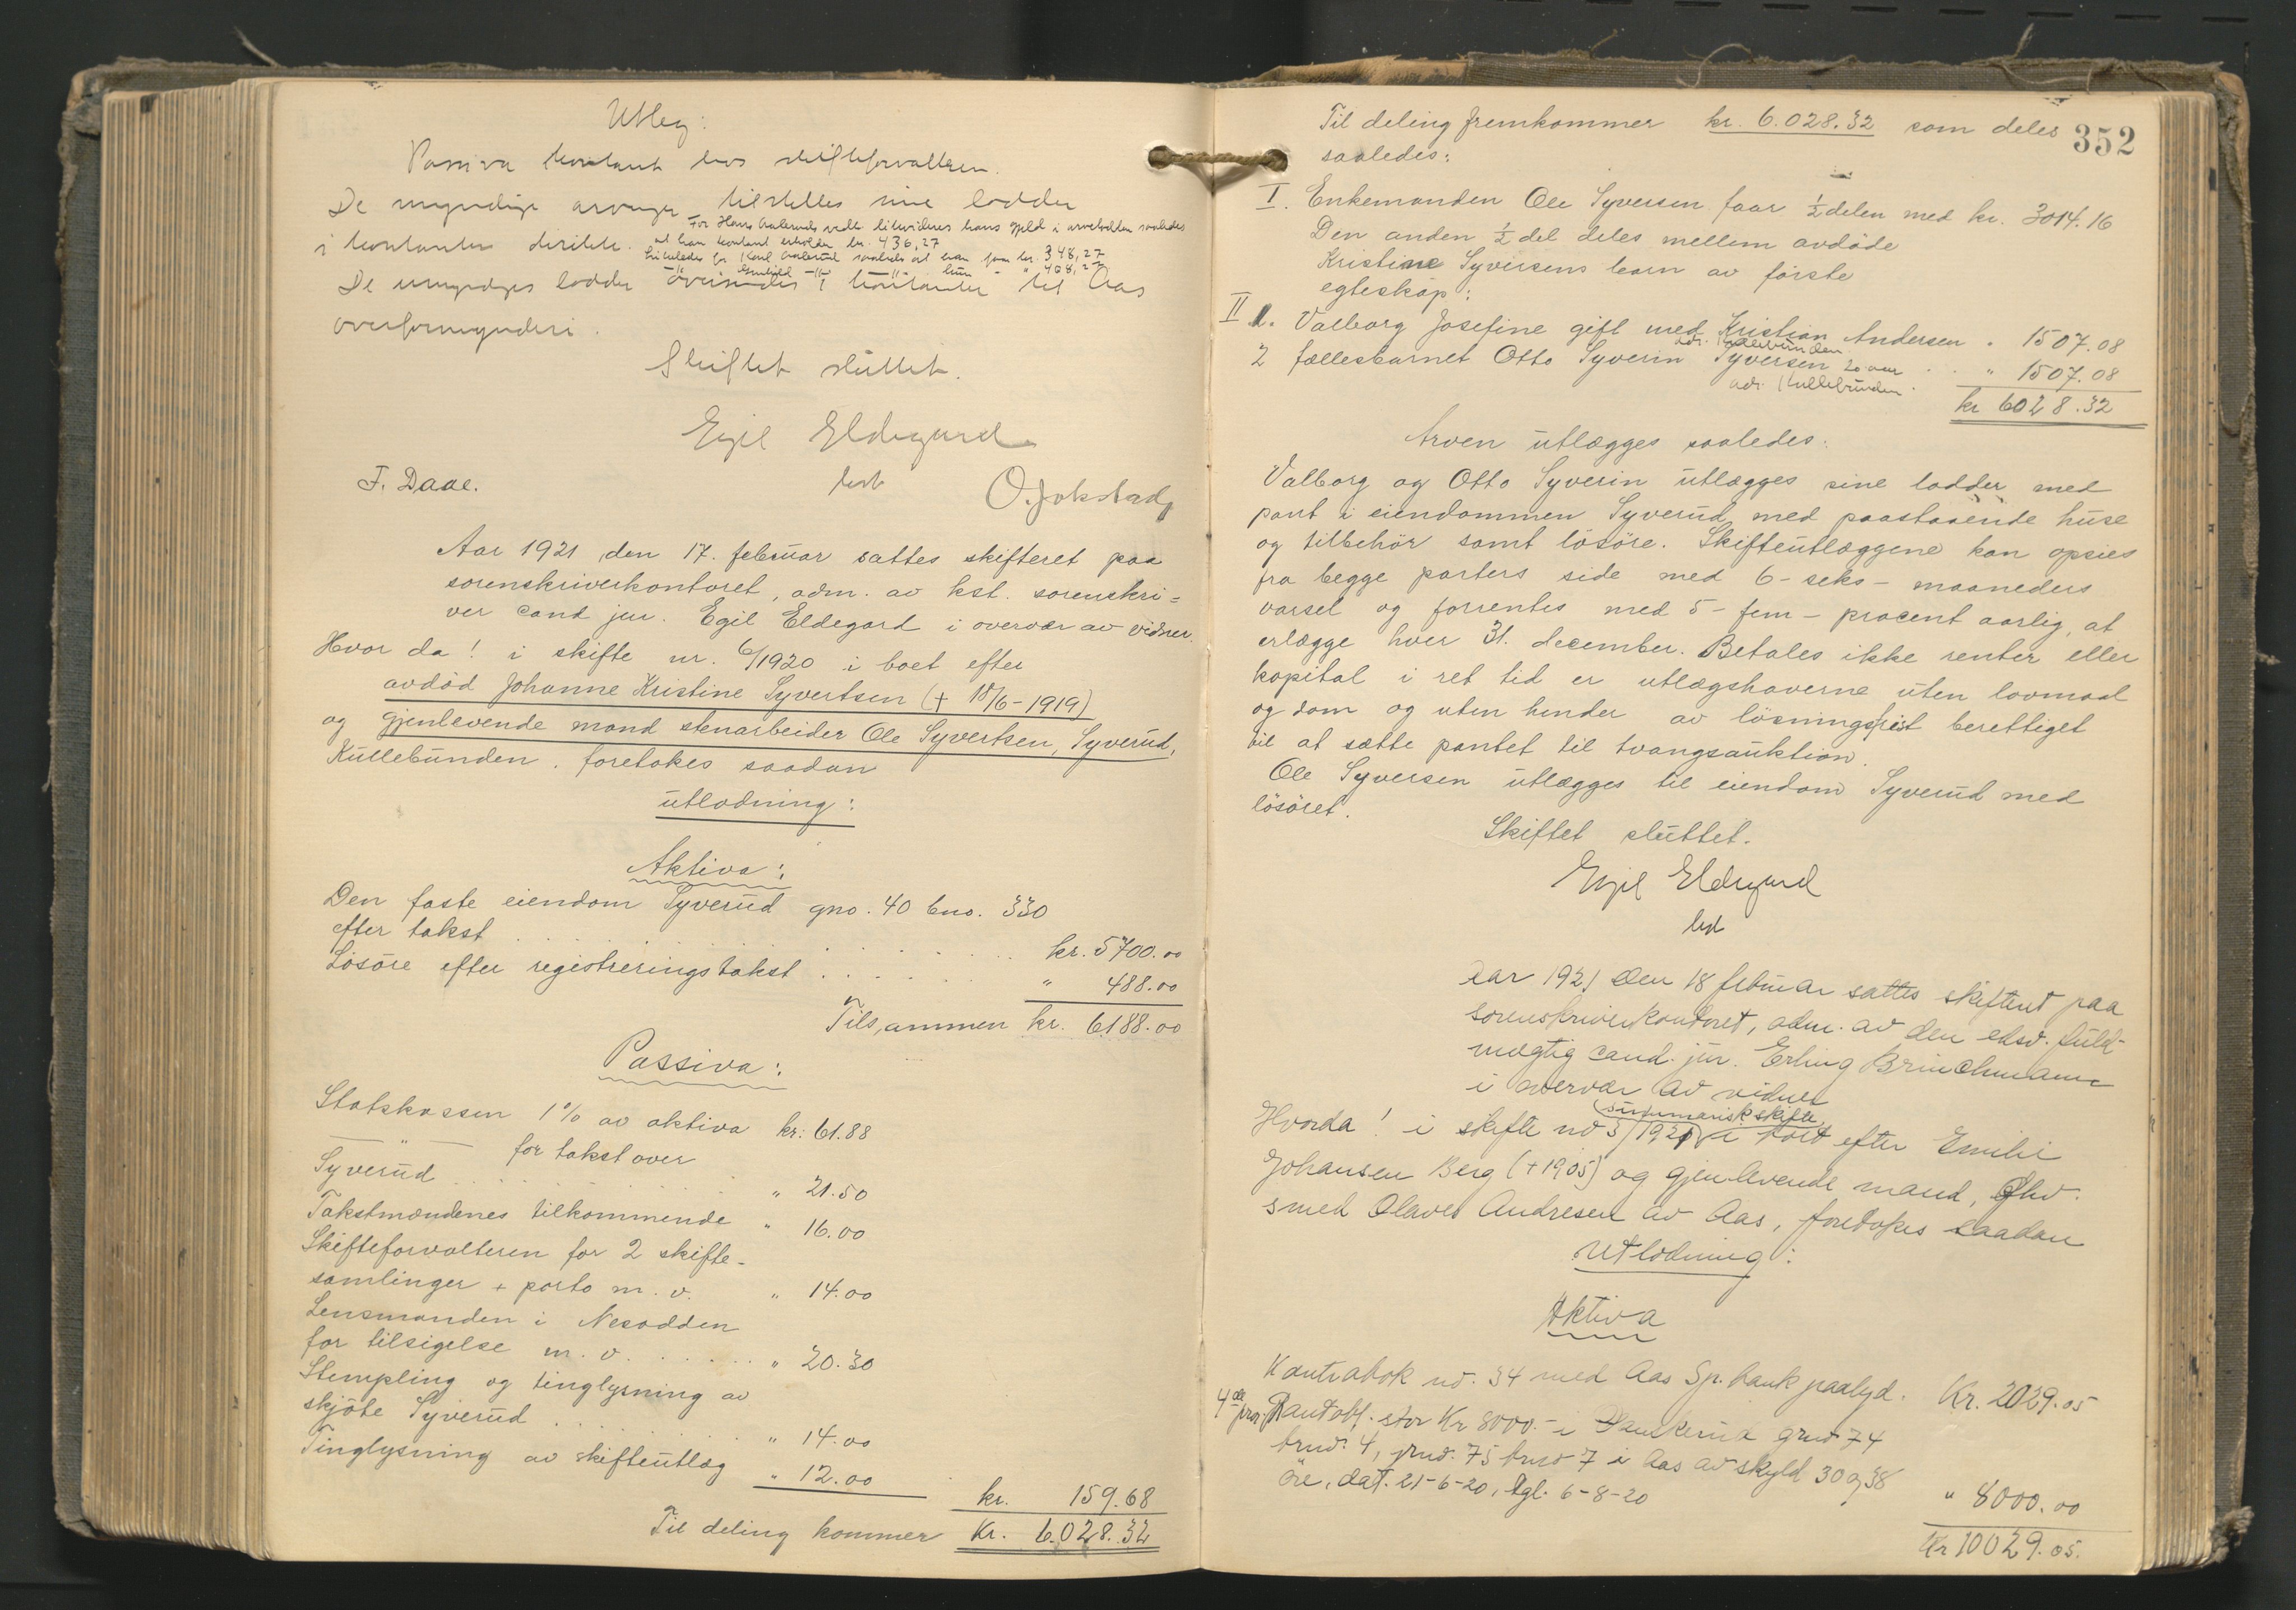 Utleg:
Passiva kontant hos skifteforvalteren.
De myndige arvinger tilstilles sine lodder
i kontanter direkte. For Hans vedk. likvideres hans gjeld i arvelodden saaledes
at han kontant erholder kr. 436,27
Likeledes for Karl saaledes at han faar kr. 348,27
—"— —"— —"— hun - " 408,27
De umyndiges lodder oversendes i kontanter til Aas
overformynderi.
Skiftet sluttet.
Egil Eldegard
kst
F. Daae.
O. Jokstad
Aar 1921 den 17. februar sattes skifteret paa
sorenskriverkontoret, adm. av kst. sorenskri=
ver cand jur. Egil Eldegard i overvær av vidner.
Hvor da! i skifte nr. 6/1920 i boet efter
avdöd Johanne Kristine Syvertsen († 18/6-1919)
og gjenlevende mand stenarbeider Ole Syvertsen, Syverud,
Kullebunden. foretokes saadan
utlodning:
Aktiva:
Den faste eiendom Syverud gno. 40 bno. 330
efter takst . . . . . . . kr. 5700.00
Lösöre efter registreringstakst . . . . . " 488.00
Tilsammen kr. 6188.00
Passiva:
Statskassen 1% av aktiva kr: 61.88
— " — for takst over
Syverud . . . . . . " 21.50
Takstmændenes tilkommende " 16.00
Skifteforvalteren for 2 skifte-
samlinger + porto m. v. " 14.00
Lensmanden i Nesodden
for tilsigelse m. v. . . . . . " 20.30
Stempling og tinglysning av
skjöte Syverud . . . . . " 14.00
Tinglysning av skifteutlæg " 12.00
kr. 159.68
Til deling kommer Kr. 6.028.32
352
Til deling fremkommer kr. 6.028.32 som deles
saaledes:
I. Enkemanden Ole Syversen faar ½ delen med kr. 3014.16
Den anden ½ del deles mellem avdöde
Kristine Syversens barn av förste
egteskap:
II 1. Valborg Josefine gift med Kristian Andersen " 1507.08
adr. Kullebunden
2 fællesbarnet Otto Syverin Syversen 20 aar . . " 1507.08
adr. Kullebunden.
kr 6028.32
Arven utlægges saaledes:
Valborg og Otto Syverin utlægges sine lodder med
pant i eiendommen Syverud med paastaaende huse
og tilbehör samt lösöre. Skifteutlæggene kan opsies
fra begge parters side med 6- seks - maaneders
varsel og forrentes med 5- fem - procent aarlig, at
erlægge hver 31. december. Betales ikke renter eller
kapital i ret tid er utlægshaverne uten lovmaal
og dom og uten hinder av lösningsfrist berettiget
til at sætte pantet til tvangsauktion.
Ole Syversen utlægges til eiendom Syverud med
lösöret.
Skiftet sluttet.
Egil Eldegard
kst
Aar 1921 den 18 februar sattes skifteret paa
sorenskriverkontoret, adm. av den edsv. fuld-
mægtig cand. jur. Erling Brinchmann
i overvær av vidner
(summarisk skifte)
Hvorda! i skifte no 3/1921 i boet efter Emilie
Johansen Berg (+1905) og gjenlevende mand, Ghv.
smed Olaves Andresen av Aas, foretokes saadan
Utlodning:
Aktiva
Kontrabok no. 34 med Aas Sp. bank paalyd. Kr. 2029.05
4de pr. Pantobl. stor Kr 8000.- i gno 74
bno. 4, gno. 75 bno 7 i Aas av skyld 30 og 38
öre, dat. 21-6-20, tgl. 6-8-20
" 8000.00
Kr 10029.05.